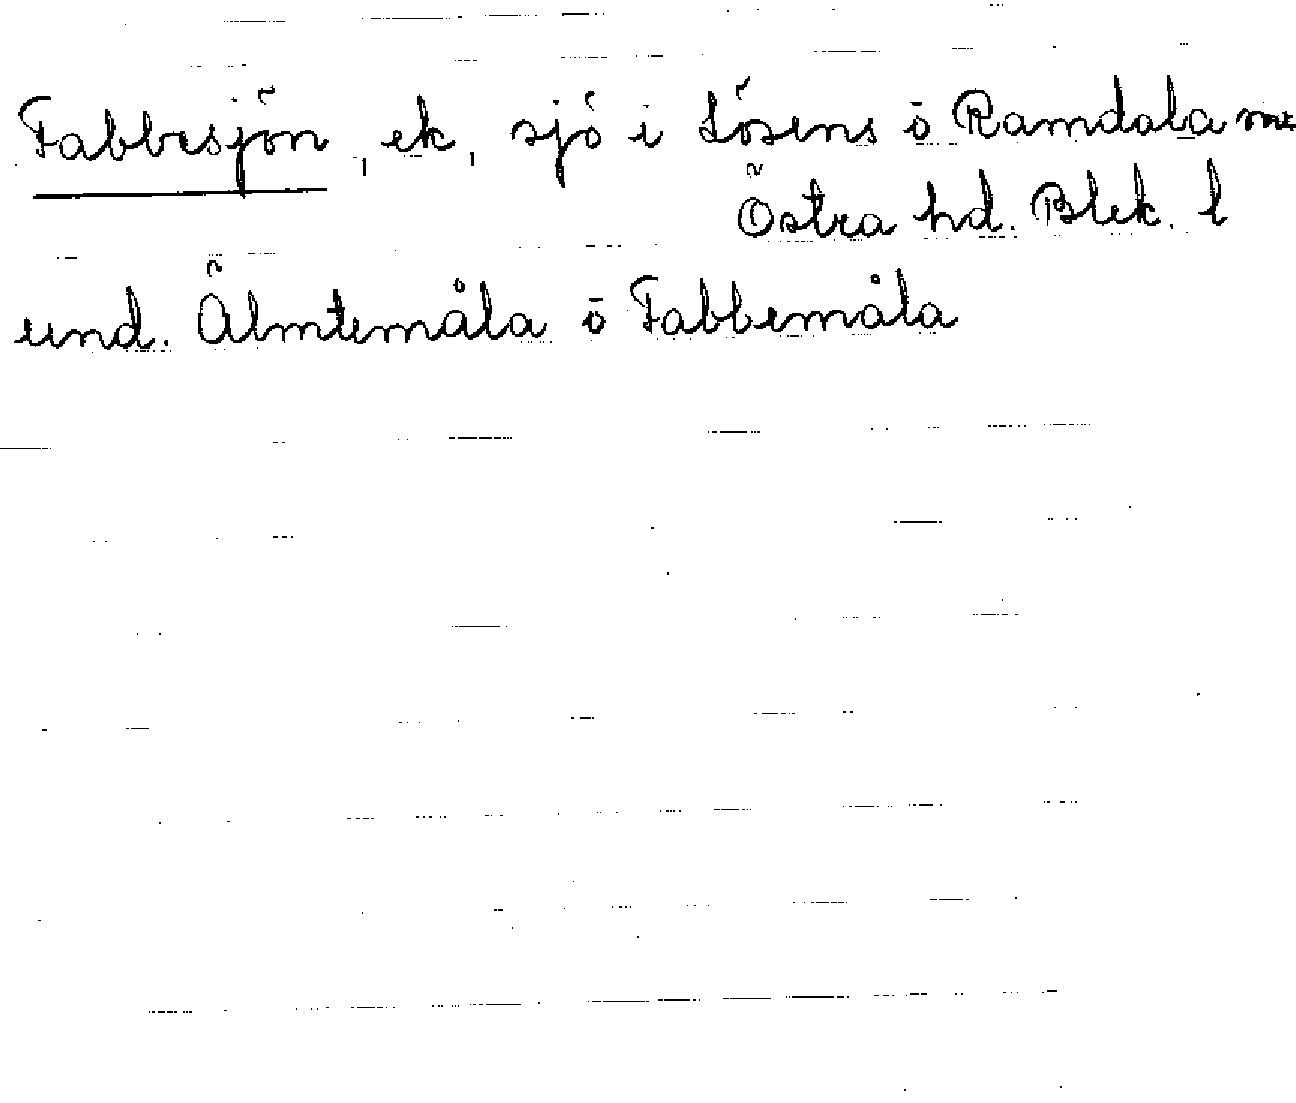 Fabbesjön, ek, sjö i Lösens o Ramdala
Östra hd. Blek. l
und. Älmtemåla o Fabbemåla